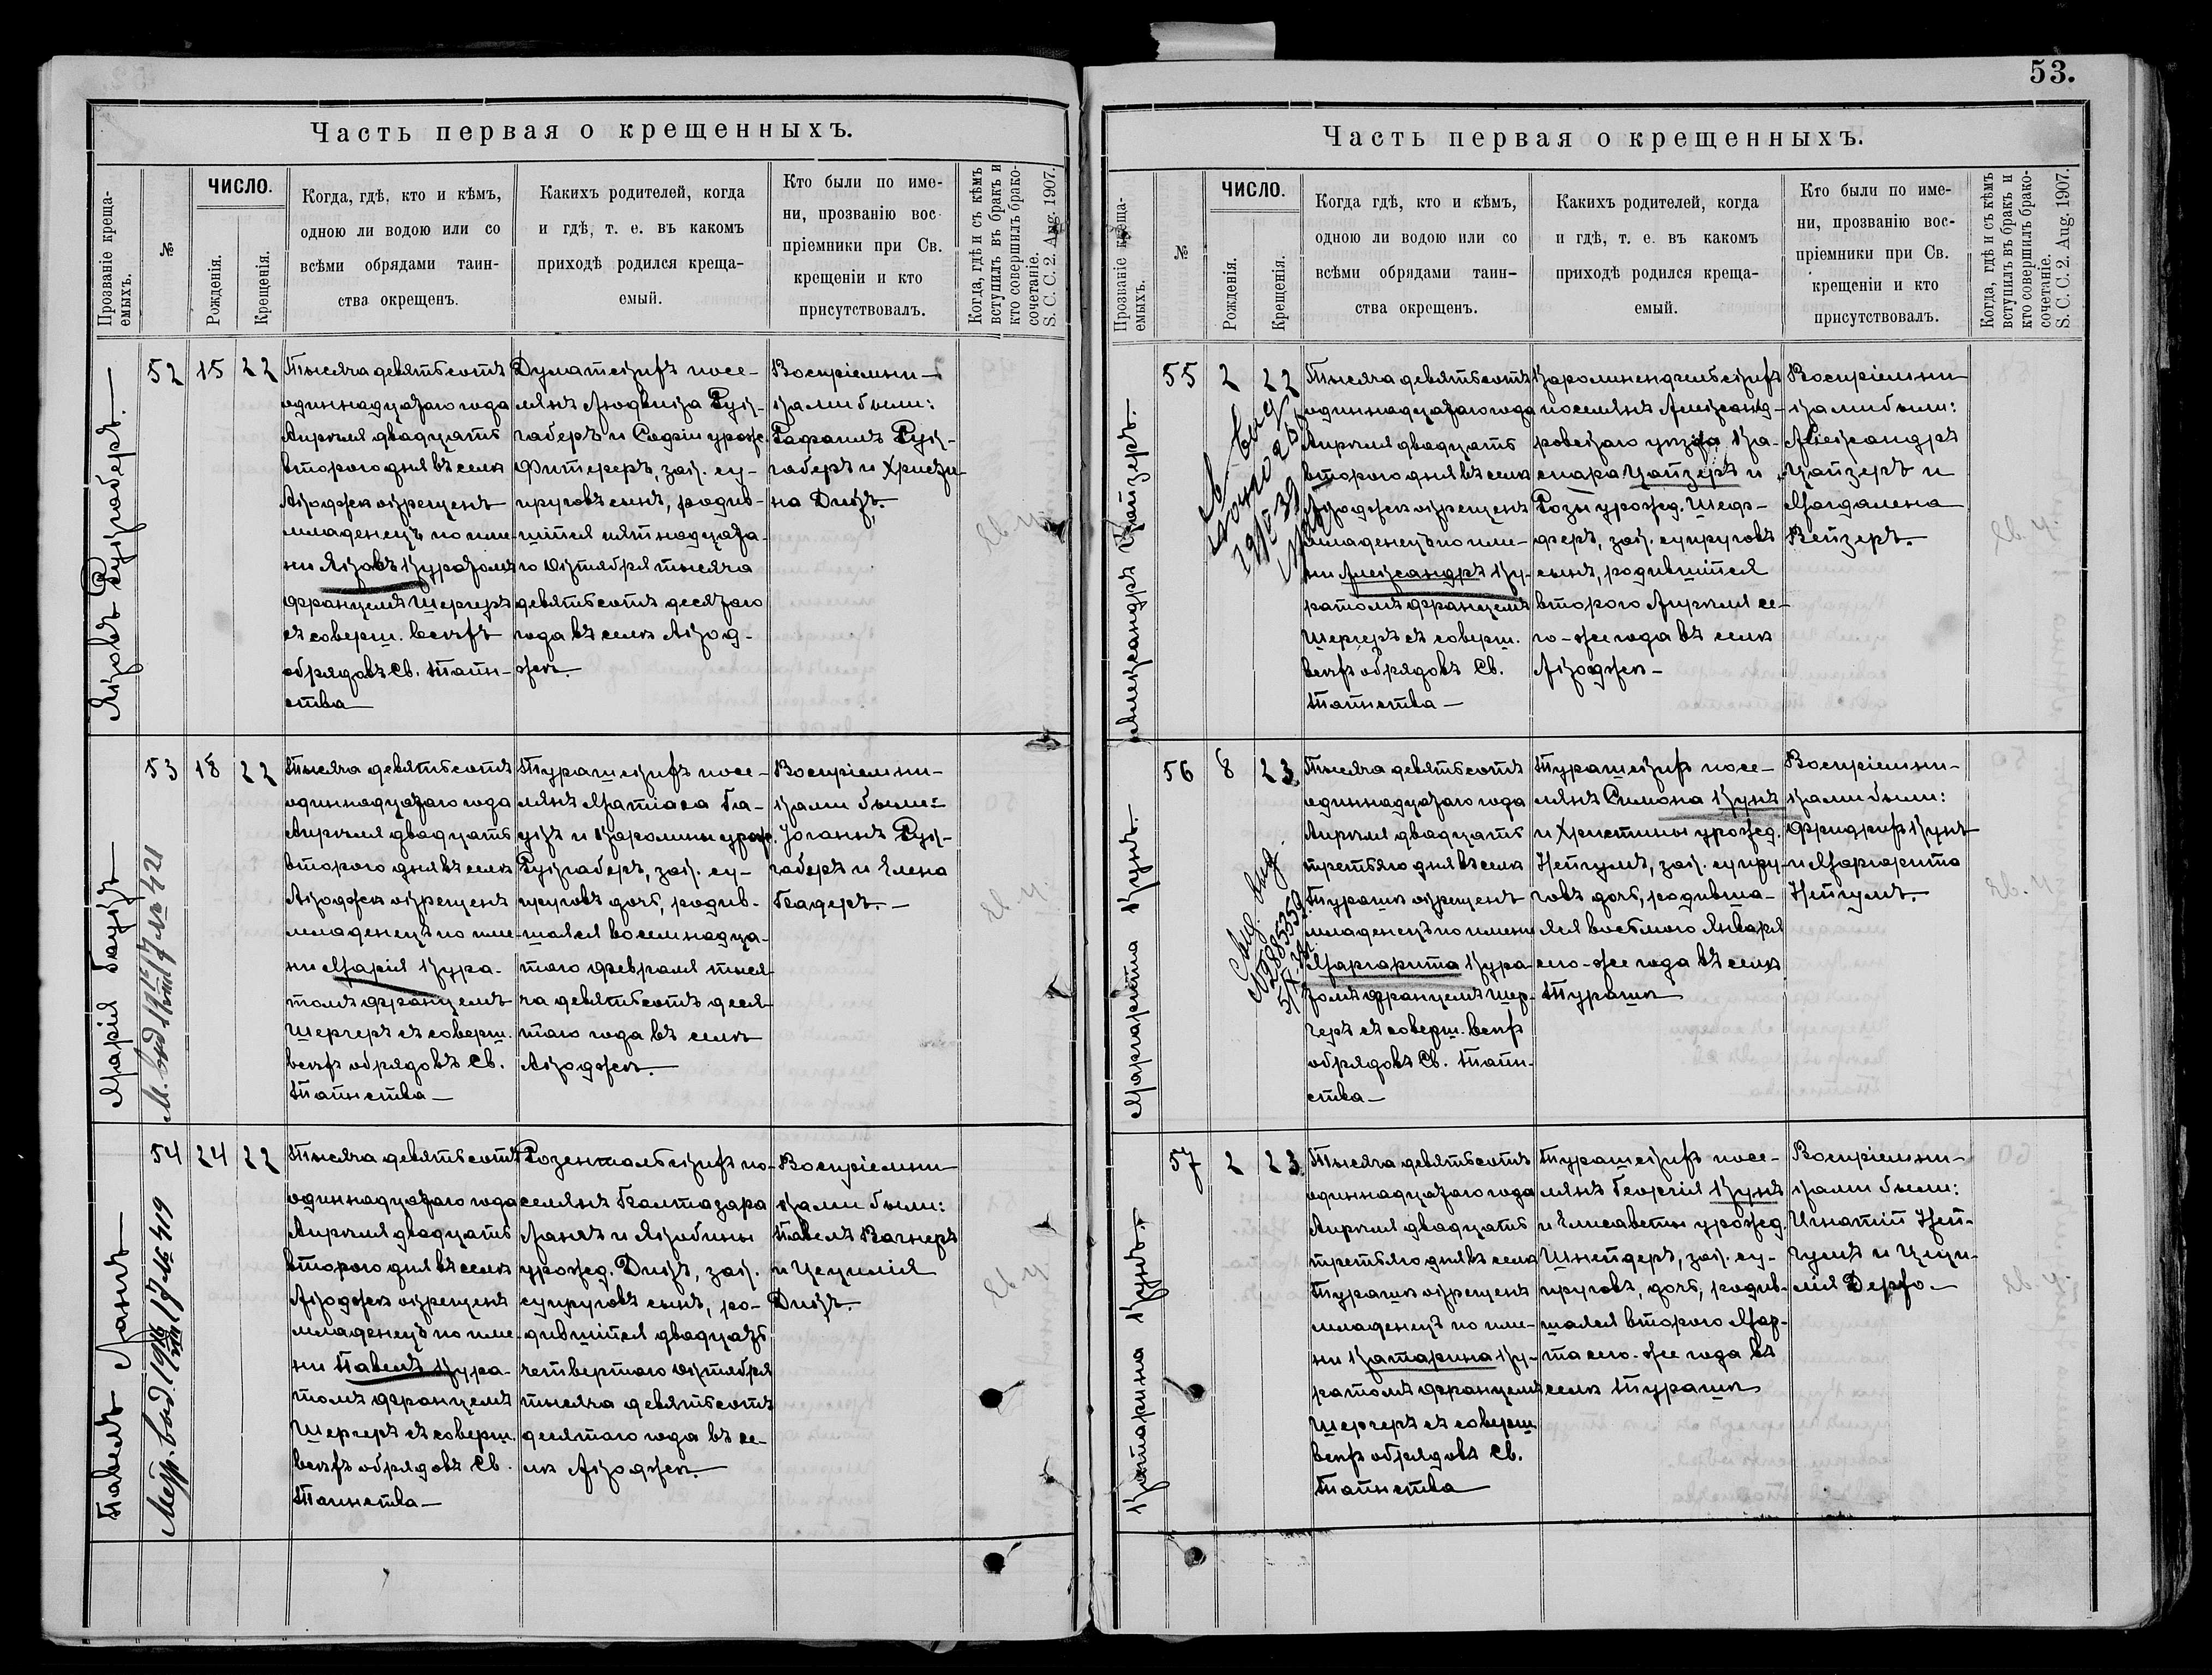 Часть первая о крещенныхъ.
Прозваніе креща-
емыхъ.
№
ЧИСЛО.
Рожденія.
Крещенія.
Когда, гдѣ, кто и кѣмъ,
одною ли водою или со
всѣми обрядами таин-
ства окрещенъ.
Какихъ родителей, когда
и гдѣ, т. е. въ какомъ
приходѣ родился креща-
емый.
Кто были по име-
ни, прозванію вос-
пріемники при Св.
крещеніи и кто
присутствовалъ.
Когда, гдѣ и съ кѣмъ
вступилъ въ бракъ и
кто совершилъ брако-
сочетаніе.
S. C. C. 2. Aug. 1907.
Яковъ Рукгаберъ.
52
15
22
Тысяча девятьсотъ
одиннадцатаго года
Апрѣля двадцать
второго дня въ селѣ
окрещенъ
младенецъ по име-
ни Яковъ Куратомъ
Францемъ Шергеръ
съ соверш. всѣхъ
обрядовъ Св. Таин-
ства
посе-
лянъ Людвига Рук-
габеръ и Софіи урож.
зак. су-
пруговъ сынъ, родив-
шійся пятнадцата-
го Октября тысяча
девятьсотъ десятаго
года въ селѣ
Воспріемни-
ками были:
Рафаилъ Рук-
габеръ и Христи-
на Дикъ.
Марія Гаукъ
М. выд.
№ 421
53
18
22
Тысяча девятьсотъ
одиннадцатаго года
Апрѣля двадцать
второго дня въ селѣ
окрещенъ
младенецъ по име-
ни Марія Кура-
томъ Францемъ
Шергеръ съ соверш.
всѣхъ обрядовъ Св.
Таинства
посе-
лянъ Матіаса Га-
укъ и Каролины урож.
Рукгаберъ, зак. су-
пруговъ дочь, родив-
шаяся восемнадца-
таго Февраля тыся-
ча девятьсотъ деся-
таго года въ селѣ
Воспріемни-
ками были:
Іоганнъ Рук-
габеръ и Елена
Павелъ Ланъ
Метр. выд.
№ 419
54
24
22
Тысяча девятьсотъ
одиннадцатаго года
Апрѣля двадцать
второго дня въ селѣ
окрещенъ
младенецъ по име-
ни Павелъ Кура-
томъ Францемъ
Шергеръ съ соверш.
всѣхъ обрядовъ Св.
Таинства
Розентальскихъ по-
селянъ Балтазара
Ланъ и Якобины
урожд. Дикъ, зак.
супруговъ сынъ, ро-
дившійся двадцать
четвертаго Октября
тысяча девятьсотъ
десятаго года въ се-
лѣ
Воспріемни-
ками были:
Павелъ Вагнеръ
и Цецилія
Дикъ.
53.
Часть первая о крещенныхъ.
Прозваніе креща-
емыхъ.
№
ЧИСЛО.
Рожденія.
Крещенія.
Когда гдѣ, кто и кѣмъ,
одною ли водою или со
всѣми обрядами таин-
ства окрещенъ.
Какихъ родителей, когда
и гдѣ, т. е. въ какомъ
приходѣ родился креща-
емый.
Кто были по име-
ни, прозванію вос-
пріемники при Св.
крещеніи и кто
присутствовалъ.
Когда, гдѣ и съ кѣмъ
вступилъ въ бракъ и
кто совершилъ брако-
сочетаніе.
S. C. C. 2. Aug. 1907.
Александръ Цайзеръ.
55
2
22
Тысяча девятьсотъ
одиннадцатаго года
Апрѣля двадцать
второго дня въ селѣ
окрещенъ
младенецъ по име-
ни Александръ Ку-
ратомъ Францемъ
Шергеръ съ соверш.
всѣхъ обрядовъ Св.
Таинства
поселянъ Александ-
ровскаго уѣзда Ка-
спара Цайзеръ и
Розы урожд. Шеф-
феръ, зак. супруговъ
сынъ, родившійся
второго Апрѣля се-
го-же года въ селѣ
Воспріемни-
ками были:
Александръ
Цайзеръ и
Магдалена
Вейзеръ.
Маргарита Кунъ.
56
8
23
Тысяча девятьсотъ
одиннадцатаго года
Апрѣля двадцать
третьяго дня въ селѣ
Турашъ окрещенъ
младенецъ по имени
Маргарита Кура-
томъ Францемъ Шер-
геръ съ соверш. всѣхъ
обрядовъ Св. Таин-
ства
Турашскихъ посе-
лянъ Симона Кунъ
и Христины урожд.
Нейгумъ, зак. супру-
говъ дочь, родивша-
яся восьмого Января
сего-же года въ селѣ
Турашъ
Воспріемни-
ками были:
Фридрихъ Кунъ
и Маргарита
Нейгумъ.
Катарина Кунъ.
57
2
23
Тысяча девятьсотъ
одиннадцатаго года
Апрѣля двадцать
третьяго дня въ селѣ
Турашъ окрещенъ
младенецъ по име-
ни Катарина Ку-
ратомъ Францемъ
Шергеръ съ соверш.
всѣхъ обрядовъ Св.
Таинства
Турашскихъ посе-
лянъ Георгія Кунъ
и Елисаветы урожд.
Шнейдеръ, зак. су-
пруговъ, дочь, родив-
шаяся второго Мар-
та сего-же года въ
селѣ Турашъ
Воспріемни-
ками были:
Игнатій Ней-
гумъ и Цеци-
лія